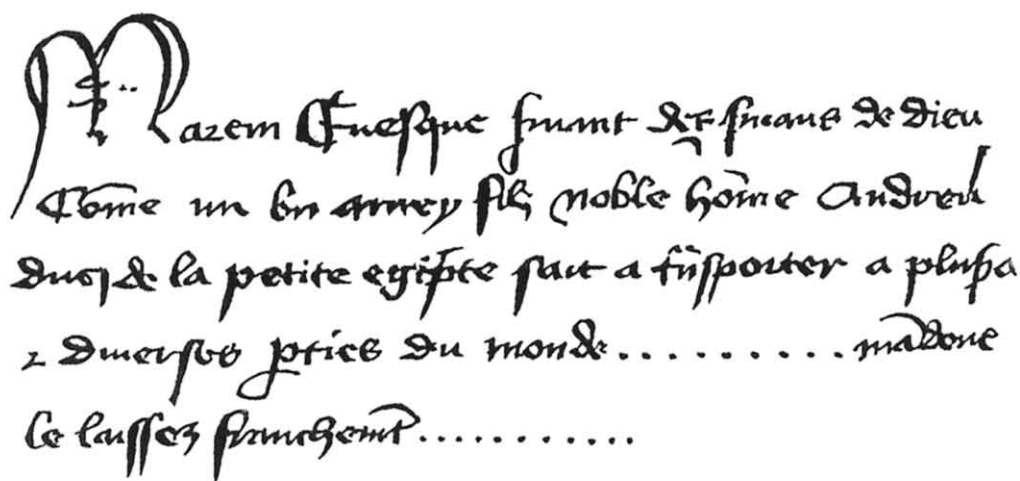 Evesque servant des servans de dieu
Come un bn amey filz noble home Andreu
duc de la petite egipte sait a tnsporter a plusrs
z diverses pties du monde .......... mandone
le laissez franchemt ............